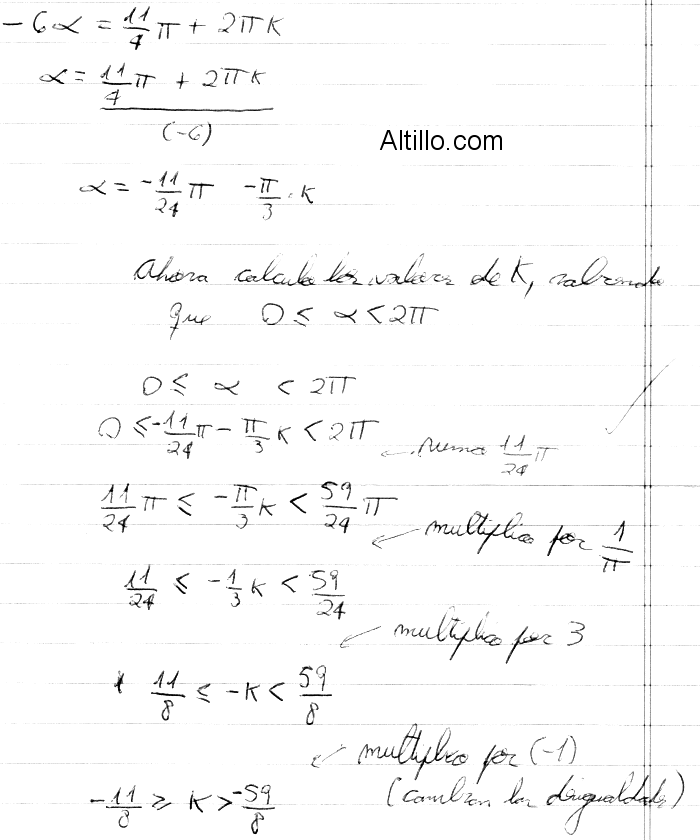 - 6α = 11/4 π + 2πk
α = 11/4 π + 2πk
(-6)
Altillo.com
α = -11/24 π -π/3 . k
Ahora calculo los valores de K, sabiendo
que 0 ≤ α < 2π
0 ≤ α < 2π
0 ≤ -11/24 π - π/3 k < 2π
← sumo 11/24 π
11/24 π ≤ -π/3 k < 59/24 π
← multiplico por 1/π
11/24 ≤ -1/3 k < 59/24
← multiplico por 3
11/8 ≤ -k < 59/8
← multiplico por (-1)
(cambian las desigualdades)
-11/8 ≥ k > -59/8